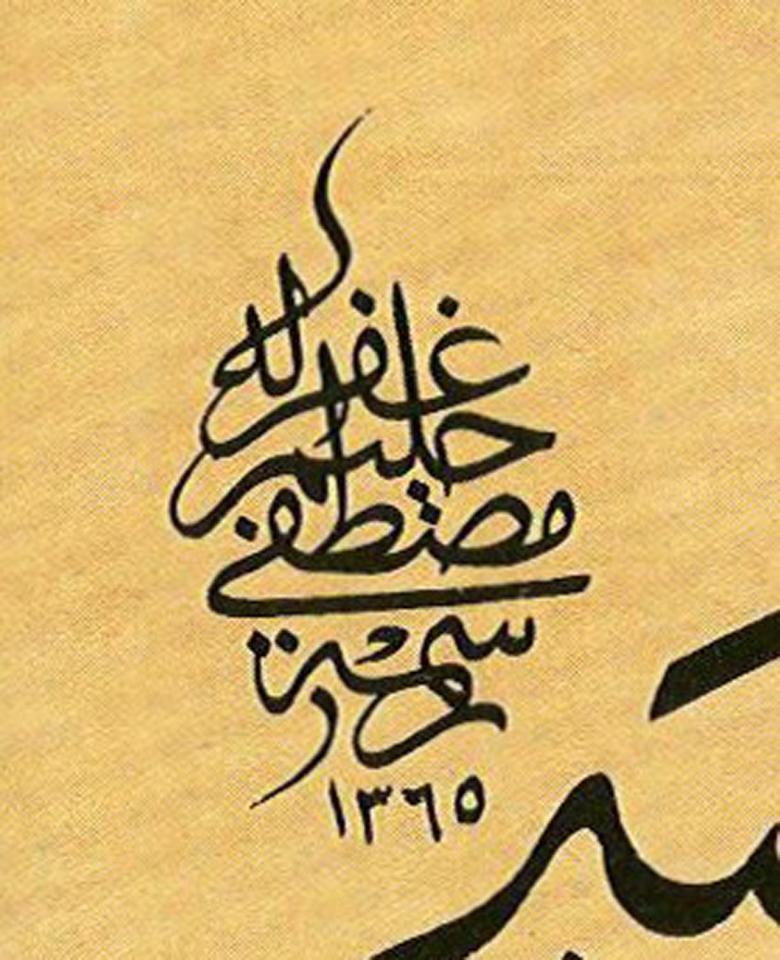 غفر له
حليم
مصطفى
١٣٦٥